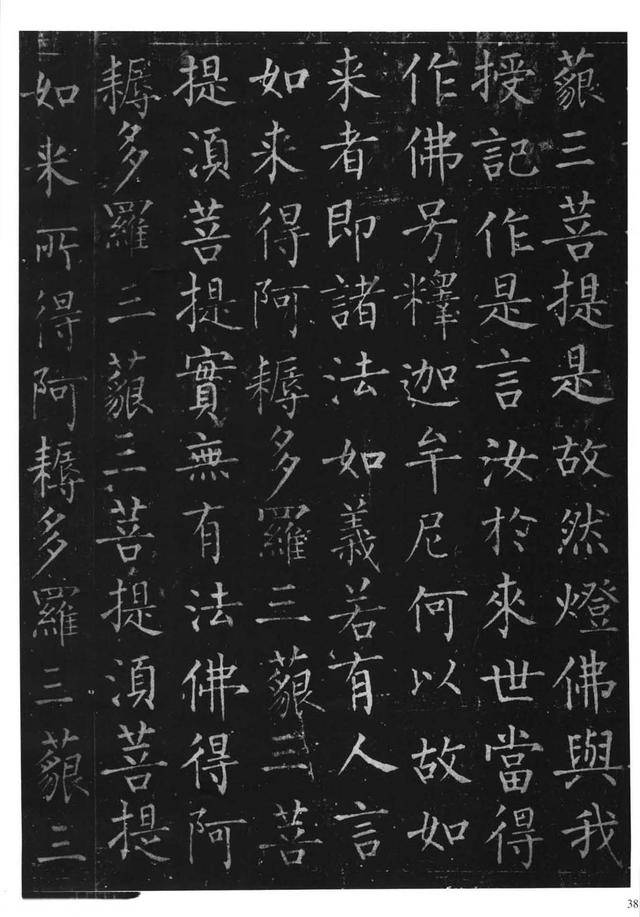 藐三菩提是故然燈佛與我
授記作是言汝於來世當得
作佛号釋迦牟尼何以故如
来者即諸法如義若有人言
如来得阿耨多羅三藐三菩
提湏菩提實無有法佛得阿
耨多羅三藐三菩提湏菩提
如来所得阿耨多羅三藐三
38